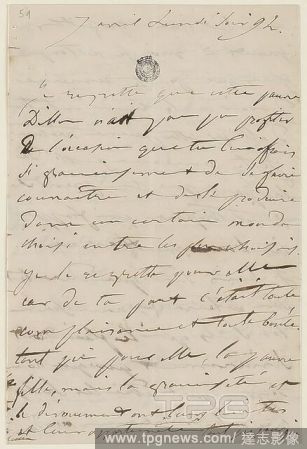 59
7 avril Lundi soir 9h.
Je regrette que cette pauvre
Dillon n'ait pas pu profiter
de l'occasion que tu lui offrais
si gracieusement de se faire
connaître et de se produire
dans un certain monde
choisi entre les plus choisis.
Je le regrette pour elle
car de ta part c'était toute
complaisance et toute bonté
tant pis pour elle, la pauvre
fille, mais la générosité et
le dévouement ont
et leurs
TPG
www.tpgnews.com / 達志影像